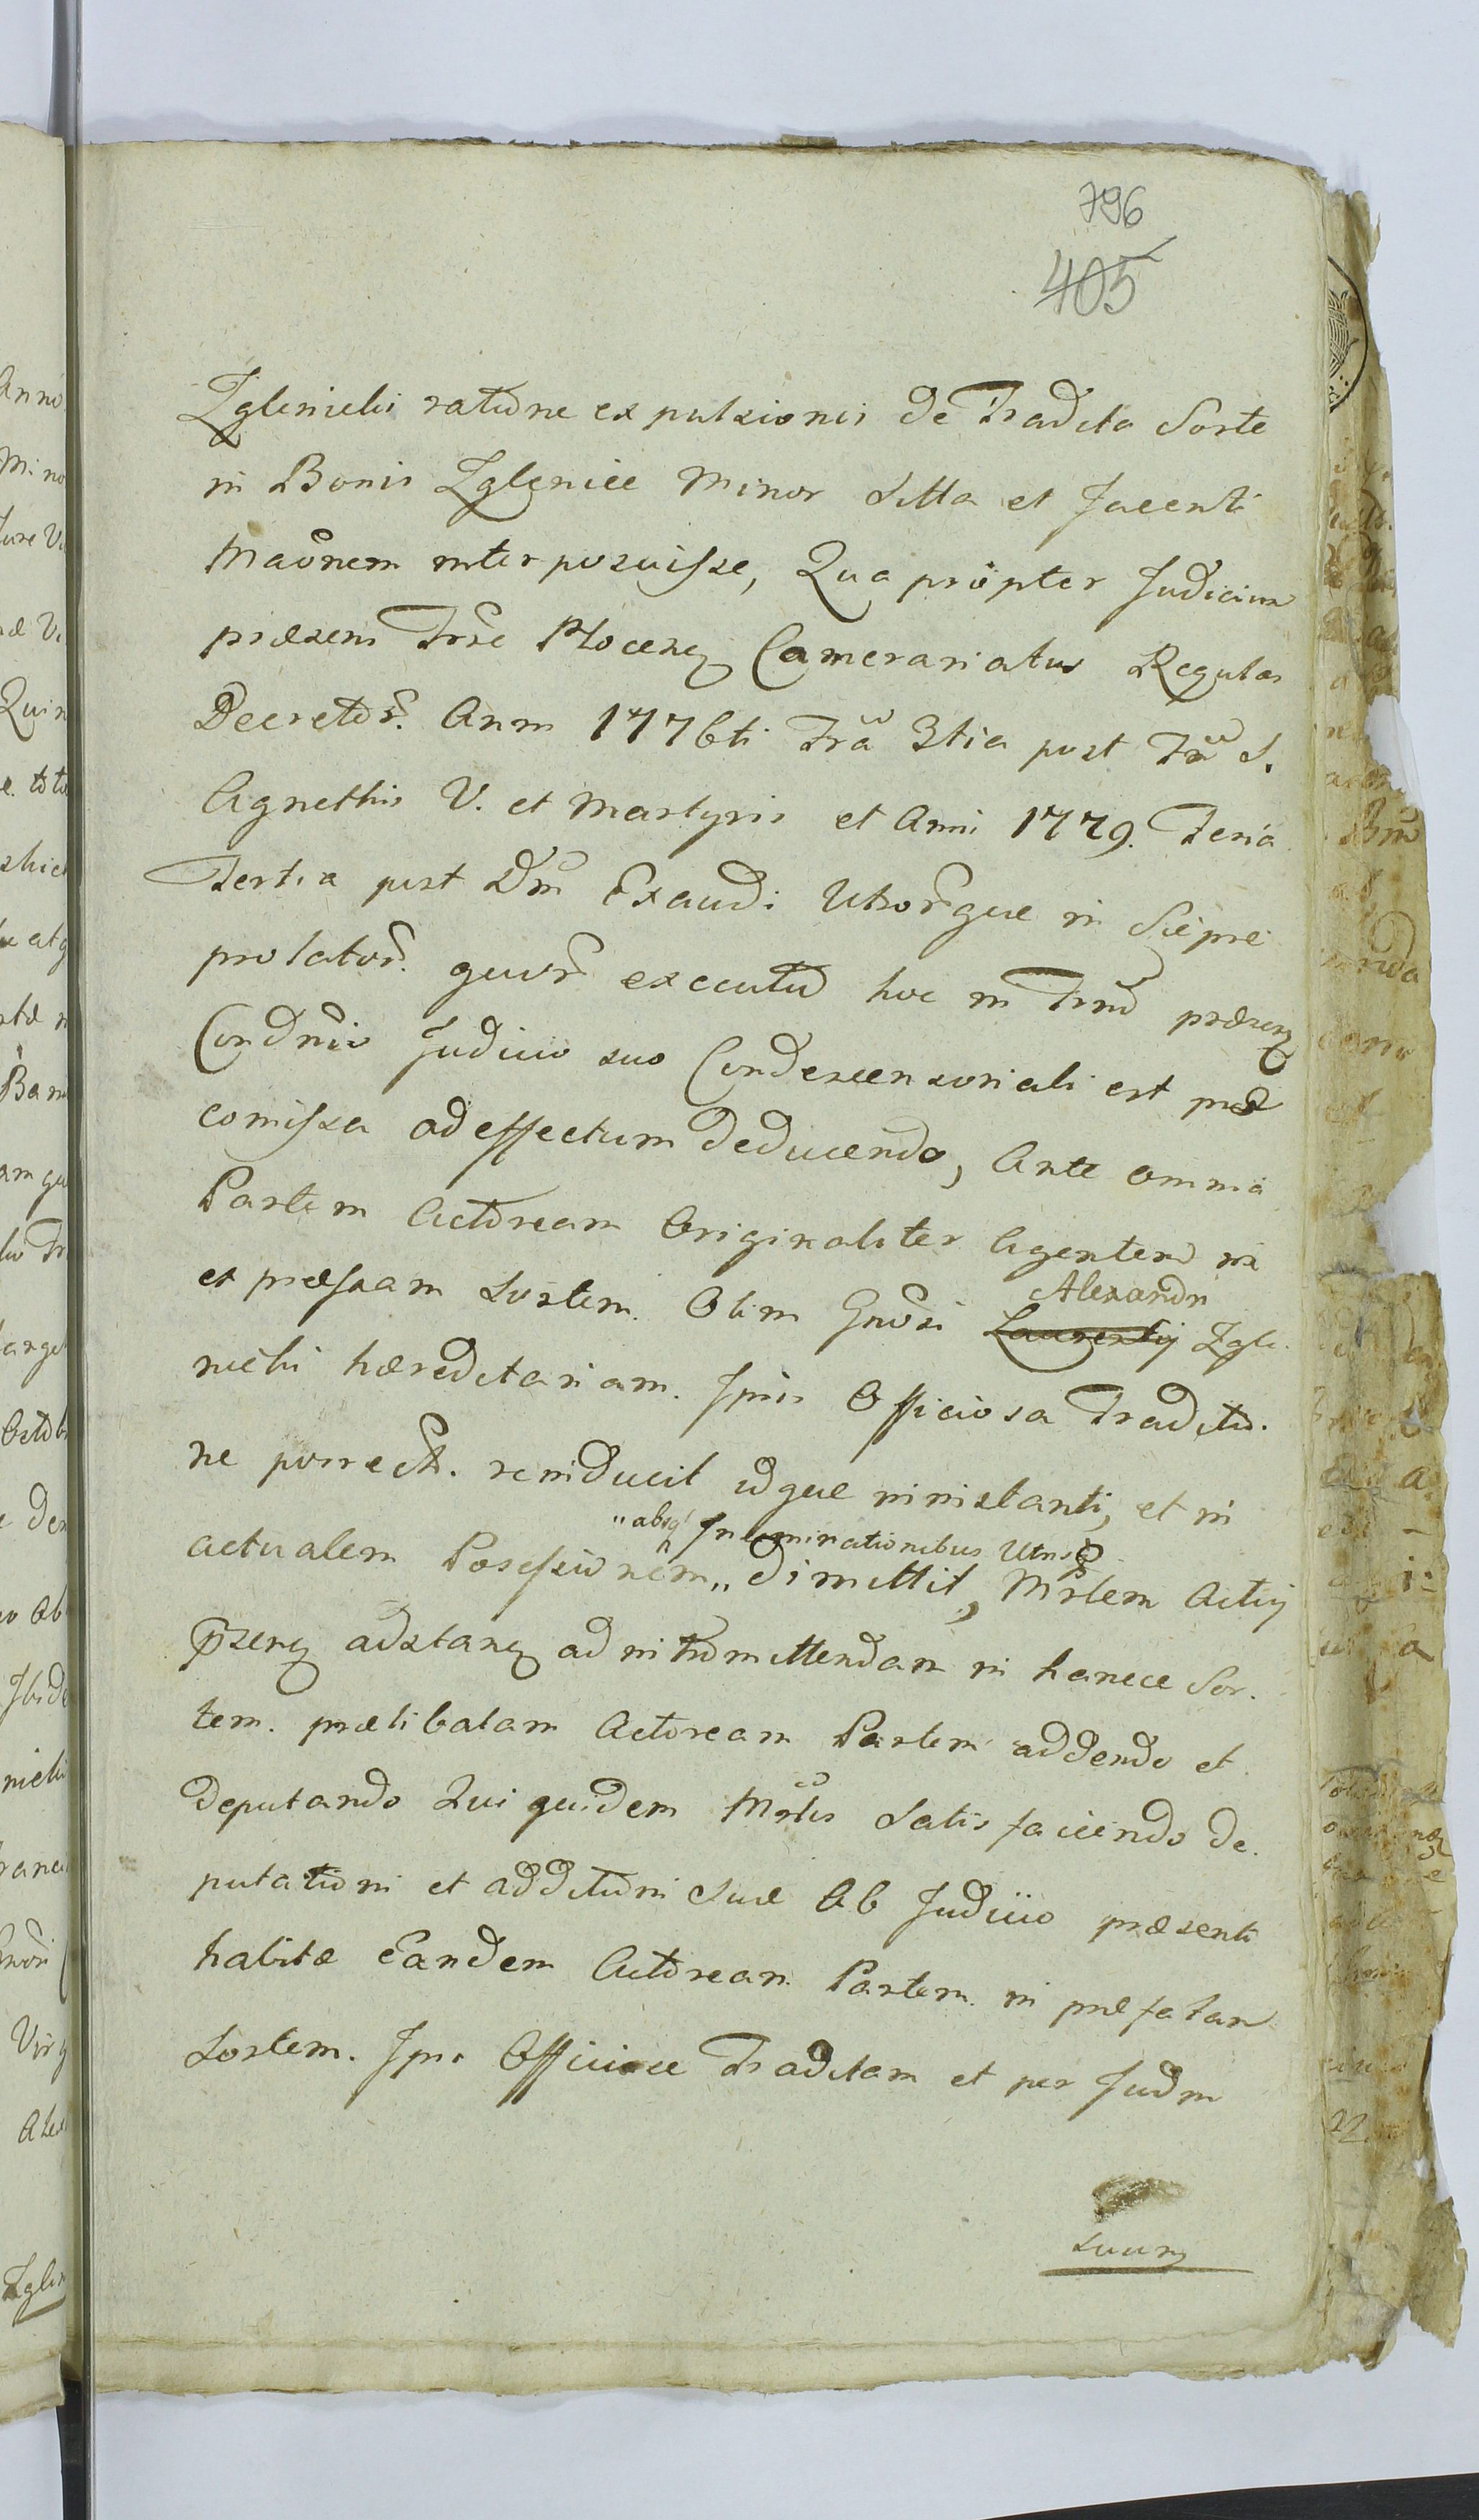 796
405
Zglenicki ratione expulsionis de Tradita Sorte
in Bonis Zglenice Minor Sitta et Jacenti
Maõnem interposuisse, Qua propter Judicium
præsens Trræ Plocen Camerariatus Regulas
Decretor. Anni 1776ti Fra 3tia post Fm S.
Agnethis V. et Martyris et Anni 1779. Feria
Tertia post Dm Exaudi Utrorque in Sierpre
prolator. quor executio hoc in Trno præsen
Condnio Judicio suo Condescensoriali est præ
comissa ad effectum deducendo, Ante omnia
Partem Actoream Originaliter Agentem in
et præssam Sortem Olim Gnõsi Laurentij Alexandri Zgle.
nicki hæreditariam. Ipsis Officiosa Traditio.
ne porrect. reinducit idque ministranti, et in
"absq Incarminationibus Utrisq
actualem Possessionem,, dimittit, Mrlem Actij
pzen adstan ad intromittendam in hancce Sor.
tem. prælibatam Actoream Partem addendo et
deputando Qui quidem Mrlis Satisfaciendo de.
putationi et additioni Suæ Ab Judicio præsenti
habitæ Eandem Actoream Partem in præfatam
Sortem. Ipsi Officiose Traditam et per Judm